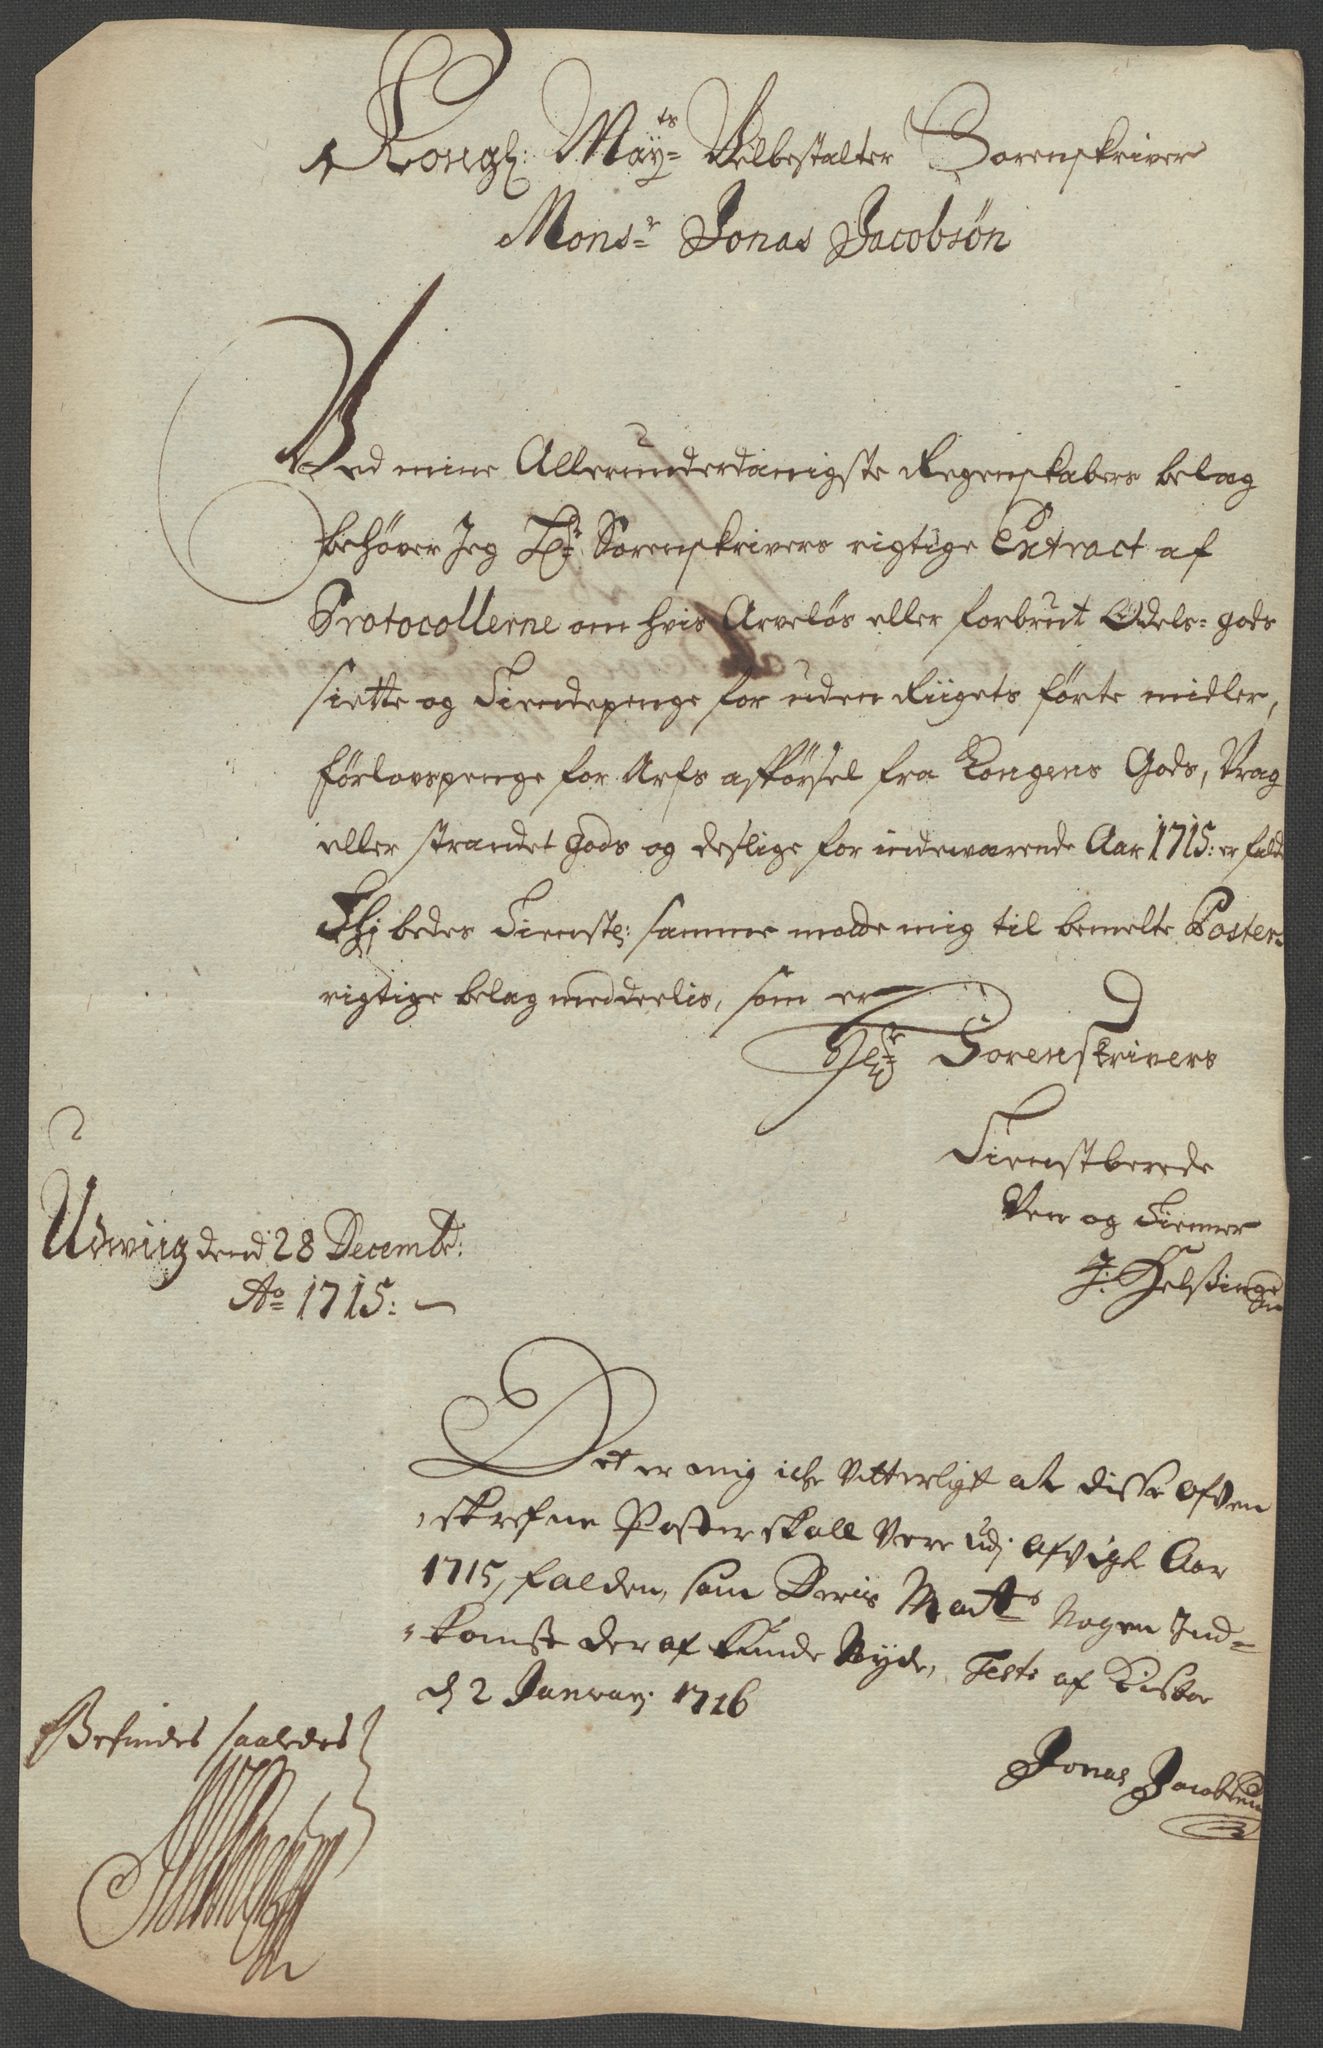 Kongl: May:ts Velbestalter Sorenskriver
Mons:r Jonas Jacobsøn
Ved mine Allerunderdanigste Regenskabers belæg
behøver Jeg Hr: Sorenskrivers rigtige Extract af
Protocollerne om hvis Arveløs eller forbrut Odels-gods
siette og Tiendepenge for uden Riigets førte midler,
førlovspenge for Arfs afkørsel fra Kongens Gods, Vrag
eller strandet Gods og deslige for indewærende Aar 1715: er fald
Thj bedes Tienstl: samme motte mig til bemelte Poster-
rigtige belæg meddeelis, som er
Sorenskrivers
Tienstberede
Ven og Tienner
Udwiig dend 28 Decembr:
J: Helsing
Ao 1715:
Det er mig iche Vitterligt at disse Ofven
skrefne Poster skall Vere udj afvigte Aar
1715, falden, som Deris May:ts Nogen Ind-
komste der af kunde Nyde, Test: af
d 2 January 1716
Befindes saaledes
Jonas Jacobsen